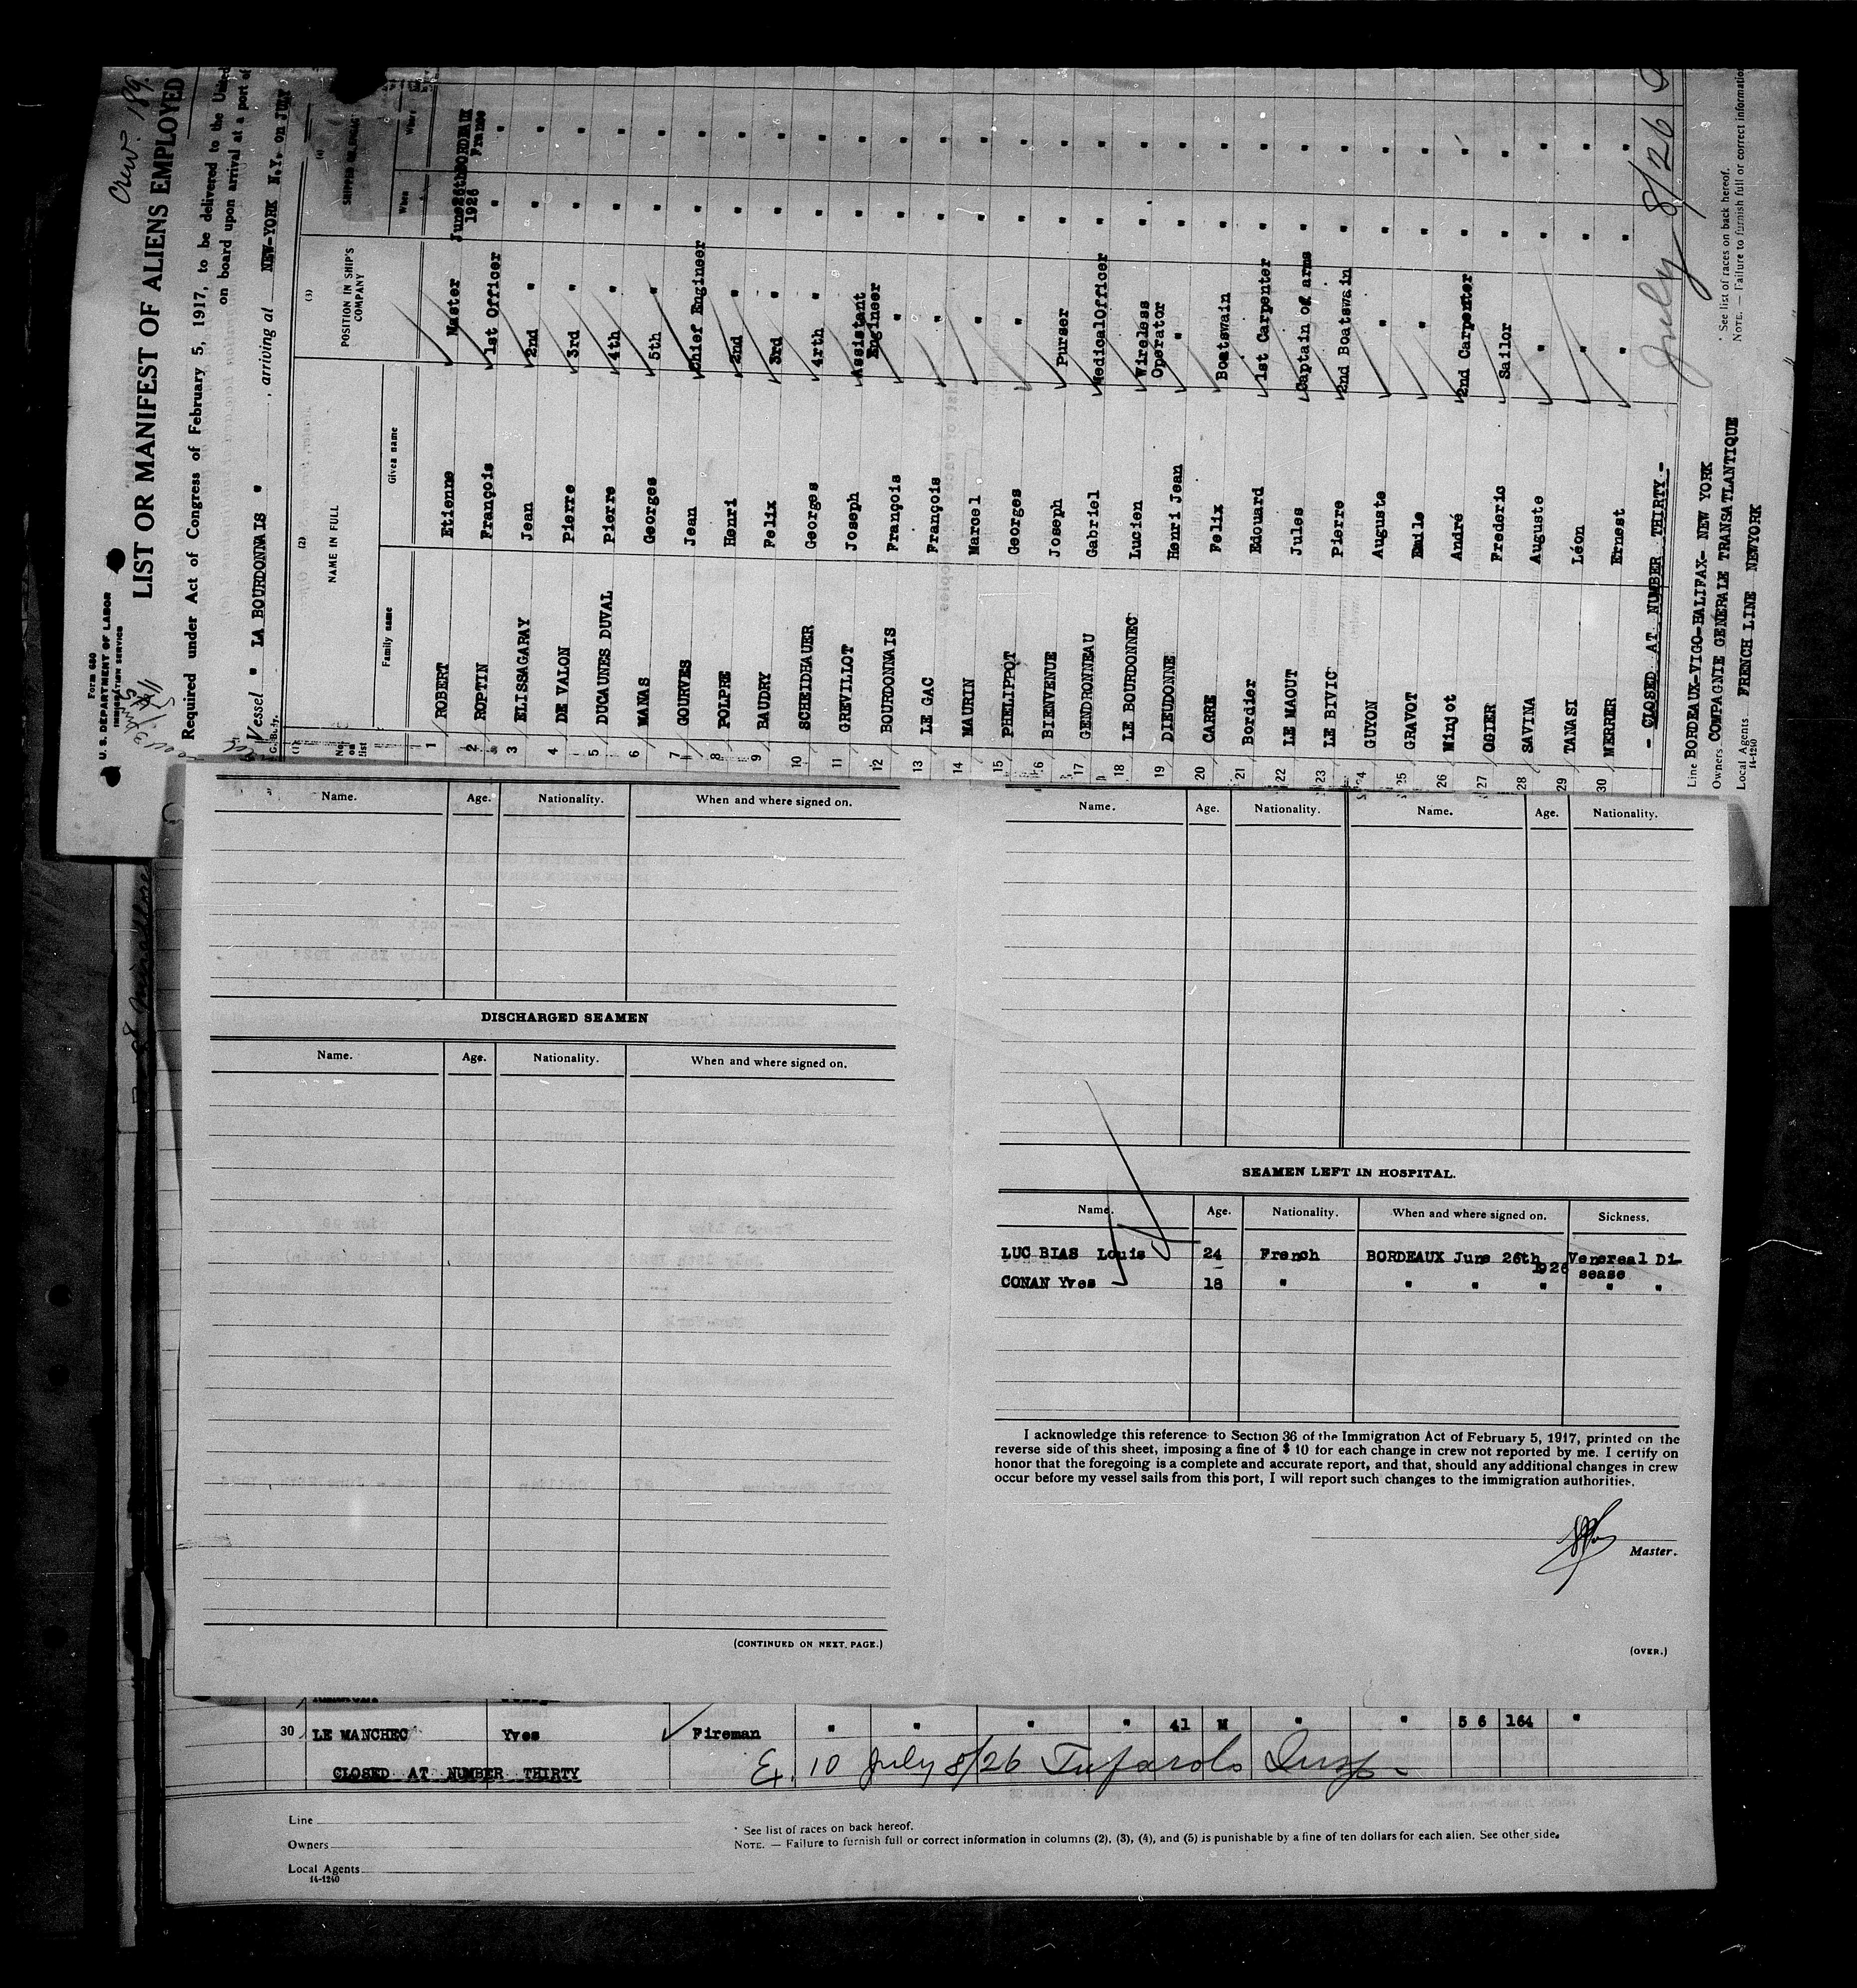 Crew. 189.
Form 680
U. S. DEPARTMENT OF LABOR
IMMIGRATION SERVICE
LIST OR MANIFEST OF ALIENS EMPLOYED
Required under Act of Congress of February 5, 1917, to be delivered to the
on board upon arrival at a port of
Vessel " LA BOURDONNAIS " , arriving at NEW-YORK N.Y. on JULY
(1) (2) (3) (4)
No. on list NAME IN FULL POSITION IN SHIP'S COMPANY
Family name Given name When Where
1 ROBERT Etienne Master June 26th 1926 BORDEAUX France
2 ROPTIN François 1st Officer " "
3 ELISSAGARAY Jean 2nd " " "
4 DE VALON Pierre 3rd " " "
5 DUCAUNES DUVAL Pierre 4th " " "
6 MANAS Georges 5th " " "
7 GOURVES Jean Chief Engineer " "
8 POLPRE Henri 2nd " " "
9 BAUDRY Felix 3rd " " "
10 SCHEIDHAUER Georges 4rth " " "
11 GREVILLOT Joseph Assistant Engineer " "
12 BOURDONNAIS François " " "
13 LE GAC François " " "
14 MAURIN Marcel " " "
15 PHELIPPOT Georges " " "
16 BIENVENUE Joseph Purser " "
17 GENDRONNEAU Gabriel MedicalOfficer " "
18 LE BOURDONNEC Lucien Wireless Operator " "
19 DIEUDONNE Henri Jean " " "
20 CARRE Felix Boatswain " "
21 Bordier Edouard 1st Carpenter " "
22 LE MAOUT Jules Captain of arms " "
23 LE BIVIC Pierre 2nd Boatswain " "
24 GUYON Auguste " " "
25 GRAVOT Emile " " "
26 Minjot André 2nd Carpenter " "
27 OGIER Frederic Sailor " "
28 SAVINA Auguste " " "
29 TANASI Léon " " "
30 MERRER Ernest " " "
- CLOSED AT NUMBER THIRTY -
July 8/26
Line BORDEAUX-VIGO-HALIFAX- NEW YORK
Owners COMPAGNIE GÉNÉRALE TRANSATLANTIQUE
Local Agents FRENCH LINE NEWYORK
14-1240
* See list of races on back hereof.
NOTE. — Failure to furnish full or correct information
Name. Age. Nationality. When and where signed on.
DISCHARGED SEAMEN
Name. Age. Nationality. When and where signed on.
(CONTINUED ON NEXT PAGE.)
Name. Age. Nationality. Name. Age. Nationality.
SEAMEN LEFT IN HOSPITAL.
Name. Age. Nationality. When and where signed on. Sickness.
LUC BIAS Louis 24 French BORDEAUX June 26th 1926 Venereal Di-
sease
CONAN Yves 18 " " " " " "
I acknowledge this reference to Section 36 of the Immigration Act of February 5, 1917, printed on the
reverse side of this sheet, imposing a fine of $ 10 for each change in crew not reported by me. I certify on
honor that the foregoing is a complete and accurate report, and that, should any additional changes in crew
occur before my vessel sails from this port, I will report such changes to the immigration authorities.
Master.
(OVER.)
30 LE MANCHEC Yves Fireman " " " " 41 M " " 5 6 164 "
CLOSED AT NUMBER THIRTY
Ex. 10 July 8/26 Tufarolo Insp.
Line
Owners
Local Agents
14-1240
* See list of races on back hereof.
NOTE. — Failure to furnish full or correct information in columns (2), (3), (4), and (5) is punishable by a fine of ten dollars for each alien. See other side.